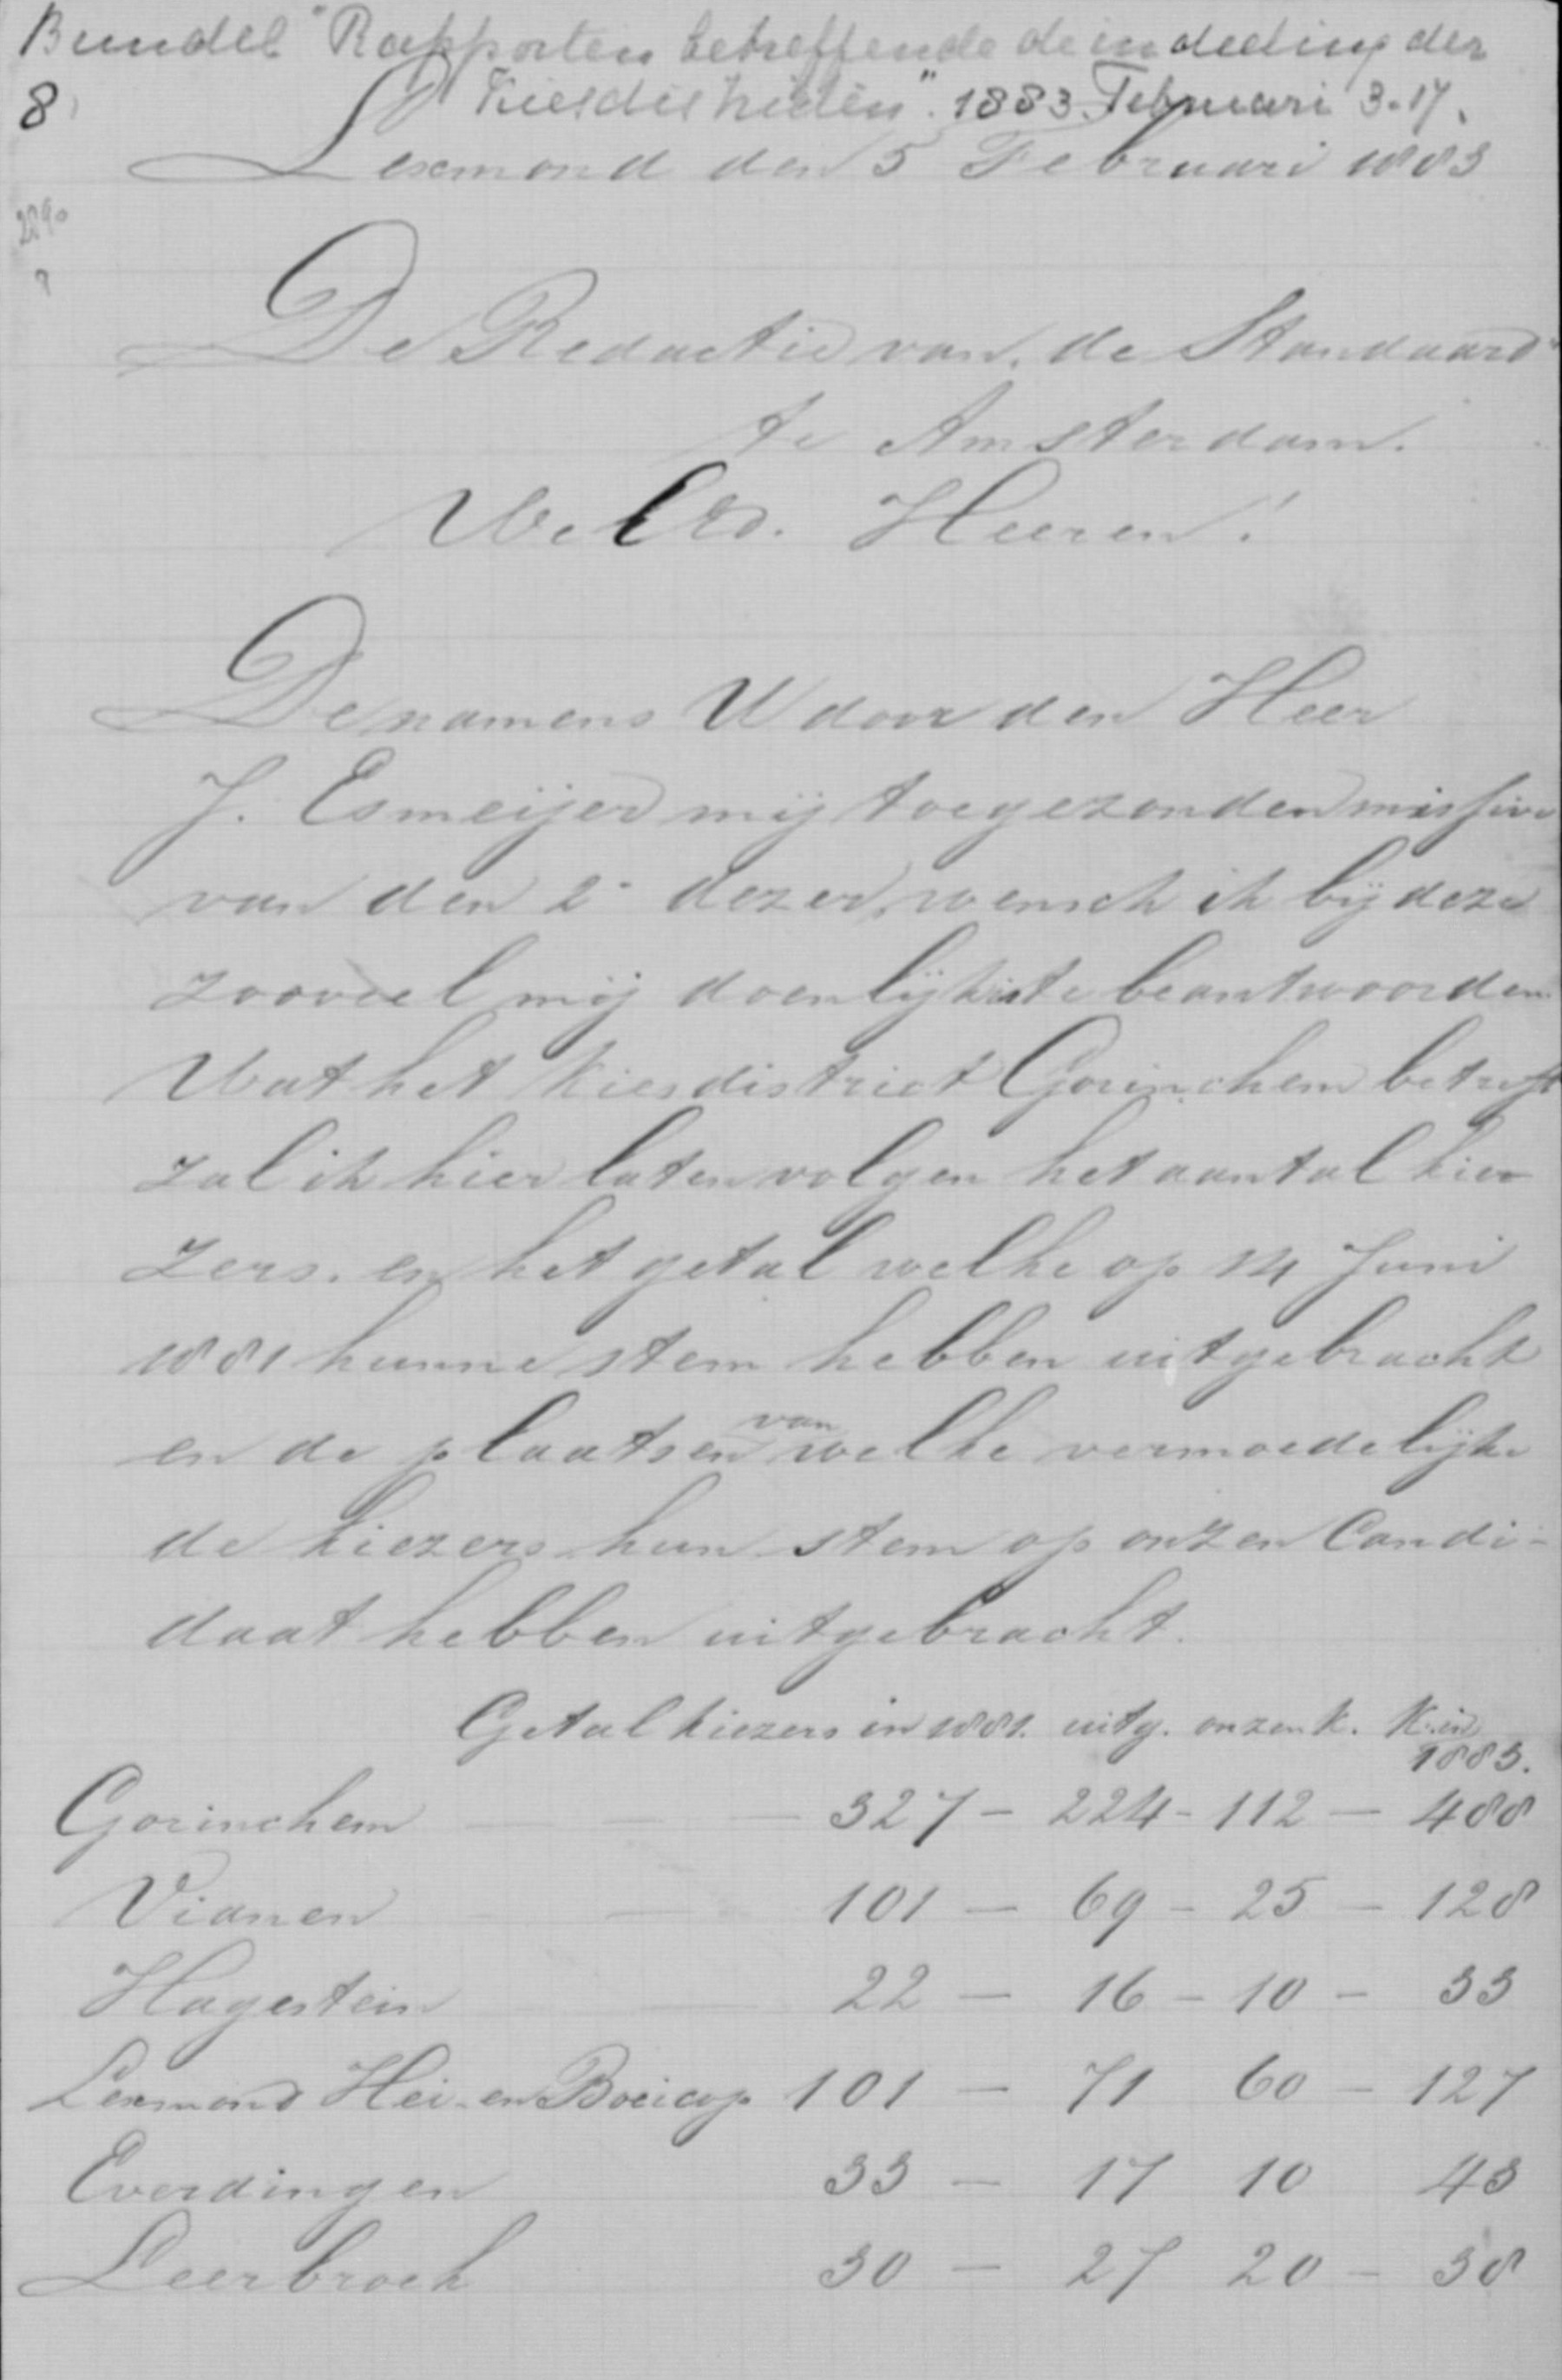 Bundel "Rapporten betreffende de indeeling der
8 Kiesdistricten". 1883 Februari 3-17.
Lexmond den 5 Februari 1883
2290
8
De Redactie van de Standaard
te Amsterdam.
WelEd. Heeren!
De namens U door den Heer
J. Esmeijer mij toegezonden missive
van den 2 dezer, wensch ik bij deze
zooveel mij doenlijk is te beantwoorden
Wat het Kiesdistrict Gorinchem betreft
zal ik hier laten volgen het aantal kie
zers. en het getal welke op 14 Juni
1881 hunne stem hebben uitgebracht
en de plaatsen van welke vermoedelijke
de kiezers hun stem op onzen Candi-
daat hebben uitgebracht.
Getal kiezers in 1881. uitg. onzen k. K. in 1883.
Gorinchem — — — 327 - 224 - 112 — 488
Vianen — — 101 — 69 - 25 — 128
Hagestein — 22 — 16 - 10 - 33
Lexmond Hei- en Boeicop 101 — 71 60 - 127
Everdingen 33 — 17 10 43
Leerbroek 30 — 27 20 - 38